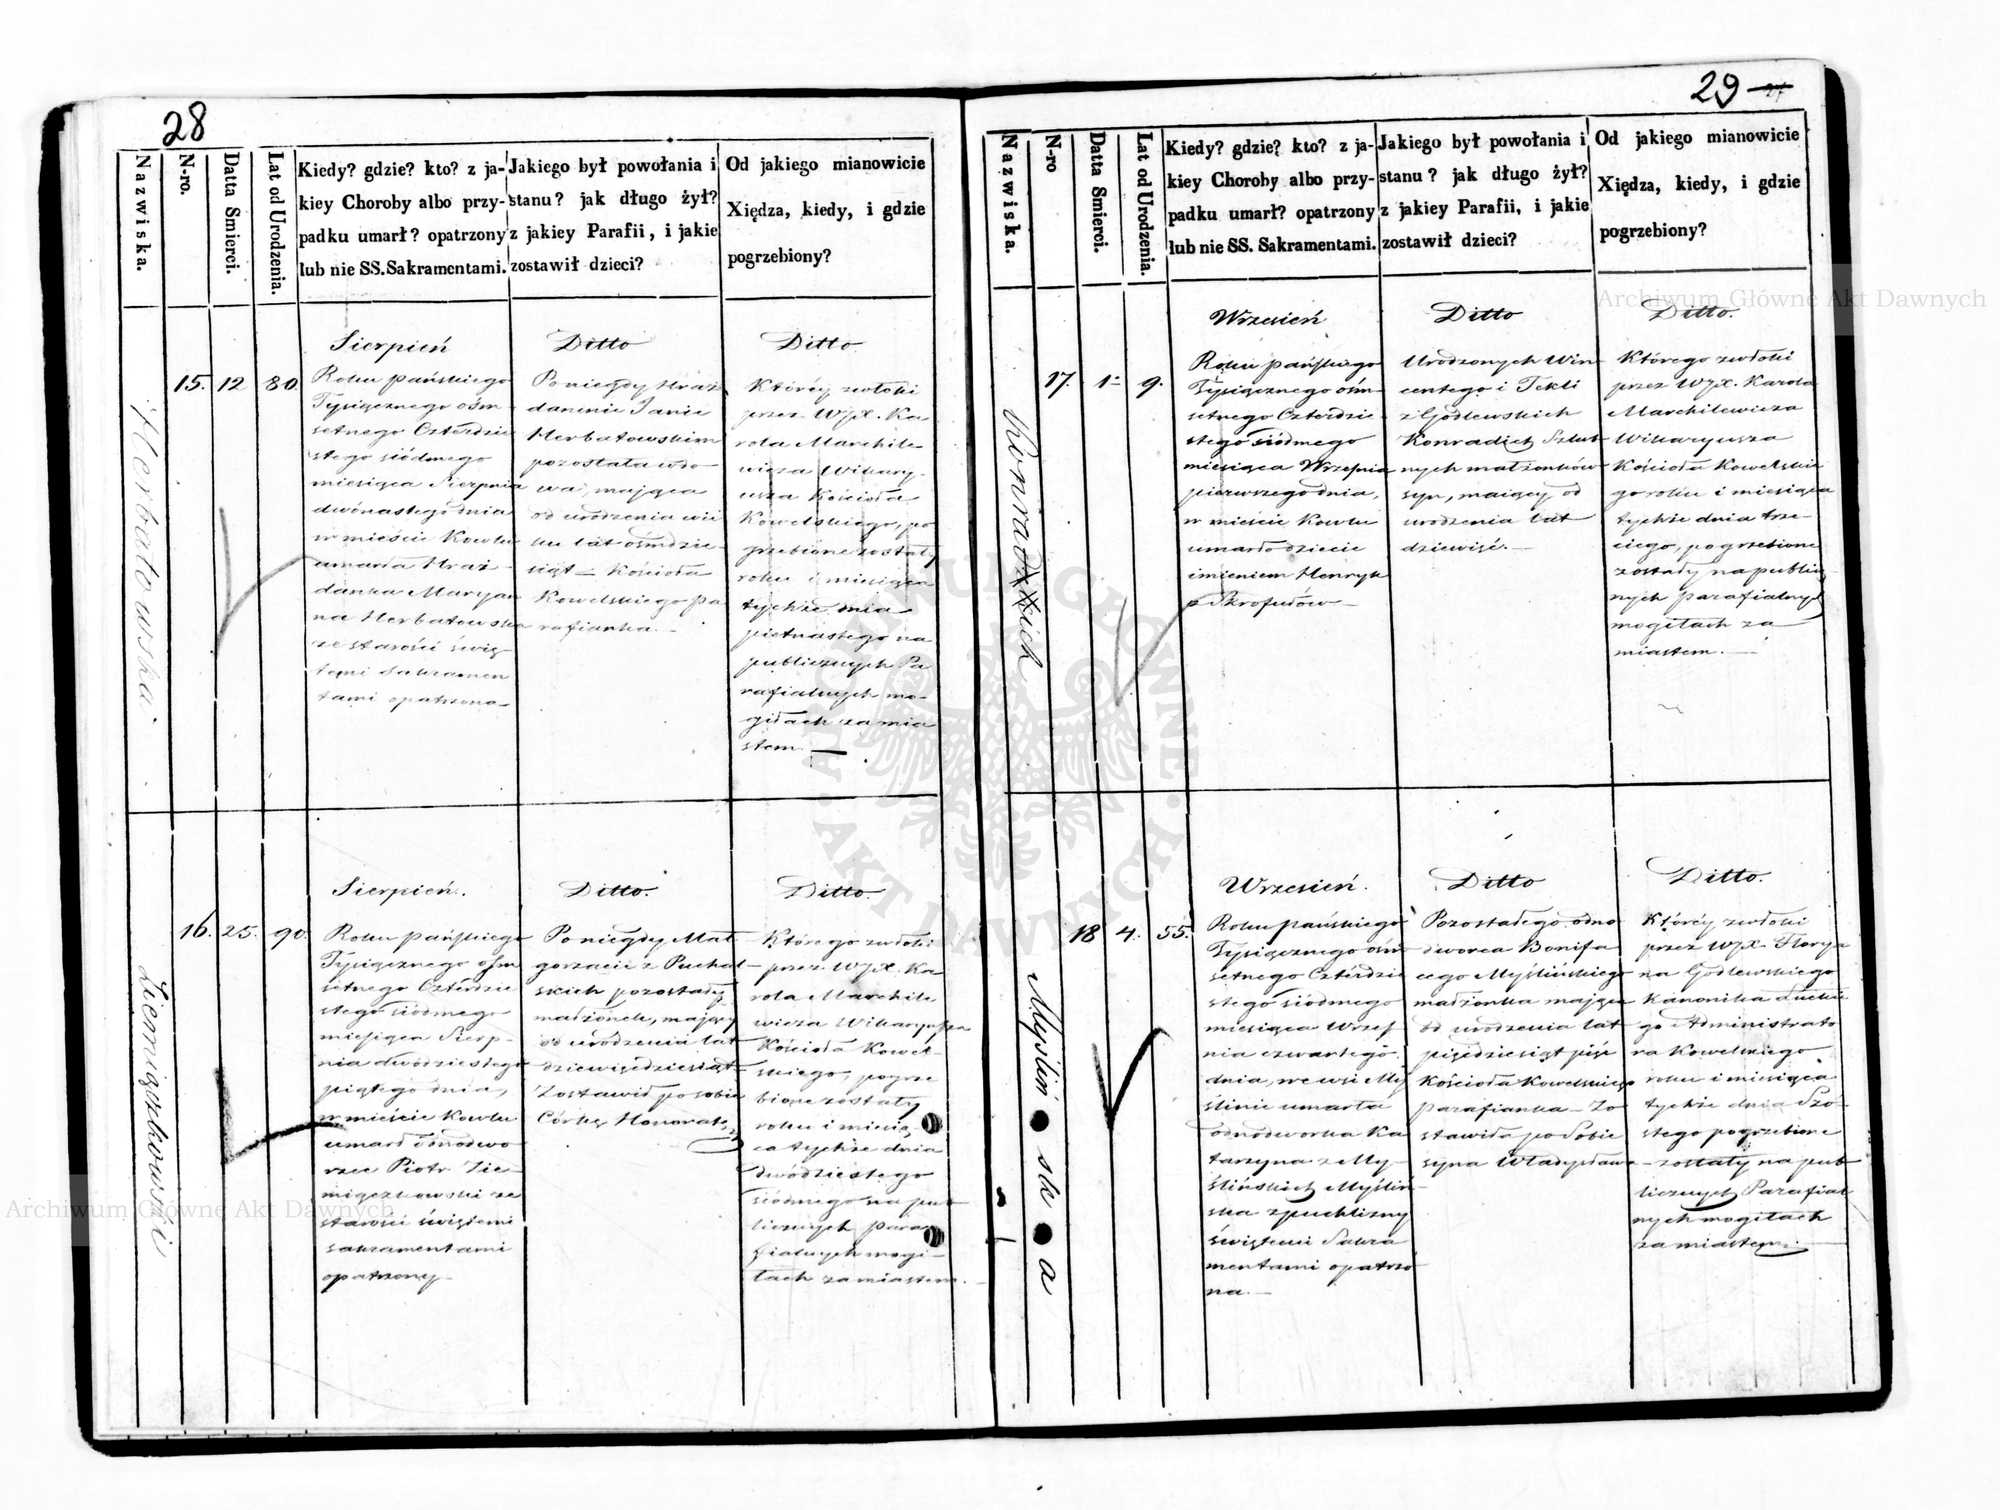 28
Nazwiska.
N-ro.
Datta Smierci.
Lat od Urodzenia.
Kiedy? gdzie? kto? z ja-
kiey Choroby albo przy-
padku umarł? opatrzony
lub nie SS. Sakramentami.
Jakiego był powołania i
stanu? jak długo żył?
z jakiey Parafii, i jakie
zostawił dzieci?
Od jakiego mianowicie
Xiędza, kiedy, i gdzie
pogrzebiony?
Herbatowska
15.
12
80.
Sierpień
Roku pańskiego
Tysiącznego ośm-
setnego Czterdzie
stego siódmego
miesiąca Sierpnia
dwónastego dnia
w mieście Kowlu
umarła Hraż-
danka Maryan
na Herbatowska
ze starości świę-
temi Sakramen
tami opatrzona
Ditto
Po niegdy Hraż
daninie Janie
Herbatowskim
pozostała wdo
wa, mająca
od urodzenia wie
ku lat ośmdzie-
siąt – Kościoła
Kowelskiego pa
rafianka.
Ditto
Któréy zwłoki
przez WJX. Ka
rola Marchile
wicza Wikary-
usza Kościoła
Kowelskiego, po
grzebione zostały
roku i miesiąca
tychże dnia
piętnastego na
publicznych Pa
rafialnych mo-
giłach za mia
stem.
Ziemiączkowski
16.
25.
90.
Sierpień.
Roku pańskiego
Tysiącznego ośm
setnego Czterdzie
stego siódmego
miesiąca Sierp-
nia dwódziestego
piątego dnia,
w mieście Kowlu
umarł odnodwo
rzec Piotr Zie-
miączkowski ze
starości świętemi
sakramentami
opatrzony
Ditto.
Po niegdy Mał
gorzacie z Puchal
skich pozostały
małżonek, mający
od urodzenia lat
dziewięćdziesiąt
Zostawił po sobie
Córkę Honoratę
Ditto.
Którego zwłoki
przez WJX. Ka
rola Marchile
wicza Wikaryusza
Kościoła Kowel-
skiego, pogrze
bione zostały
roku i miesią
ca tychże dnia
dwódziestego
siódmego na pub
licznych para
fialnych mogi-
łach za miastem.
29
Nazwiska.
N-ro
Datta Smierci.
Lat od Urodzenia.
Kiedy? gdzie? kto? z ja-
kiey Choroby albo przy-
padku umarł? opatrzony
lub nie SS. Sakramentami.
Jakiego był powołania i
stanu? jak długo żył?
z jakiey Parafii, i jakie
zostawił dzieci?
Od jakiego mianowicie
Xiędza, kiedy, i gdzie
pogrzebiony?
17.
1
9.
Wrzesień
Roku pańskiego
Tysiącznego ośm
setnego Czterdzie
stego siódmego
miesiąca Września
pierwszego dnia,
w mieście Kowlu
umarło dziecie
imieniem Henryk
z Skrofułów
Ditto
Urodzonych Win
centego i Tekli
z Godlewskich
Konradich Szlub
nych małżonków
syn, maiący od
urodzenia lat
dziewięć.
Ditto.
Którego zwłoki
przez WJX. Karola
Marchilewicza
Wikaryusza
Kościoła Kowelskie
go roku i miesiąca
tychże dnia trze-
ciego, pogrzebione
zostały na public
nych parafialnych
mogiłach za
miastem.
Myślińska
18
4.
55.
Wrzesień.
Roku pańskiego
Tysiącznego ośm
setnego Czterdzie
stego siódmego
miesiąca Wrześ
nia czwartego
dnia, we wsi My
ślinie umarła
odnodworka Ka
tarzyna z My-
ślińskich Myśliń-
ska z puchlizny
świętemi Sakra
mentami opatrzo
na.
Ditto
Pozostałego odno
dworca Bonifa
cego Myślińskiego
małżonka mająca
od urodzenia lat
pięćdziesiąt pięć
Kościoła Kowelskiego
parafianka – Zo
stawiła po sobie
syna Władysława
Ditto.
Któréy zwłoki
przez WJX. Florya
na Godlewskiego
Kanonika Łuckie
go Administrato
ra Kowelskiego
roku i miesiąca
tychże dnia Szó-
stego pogrzebione
zostały na pub
licznych Parafial
nych mogiłach
za miastem.
Archiwum Główne Akt Dawnych
Archiwum Główne Akt Dawnych
ARCHIWUM GŁÓWNE AKT DAWNYCH